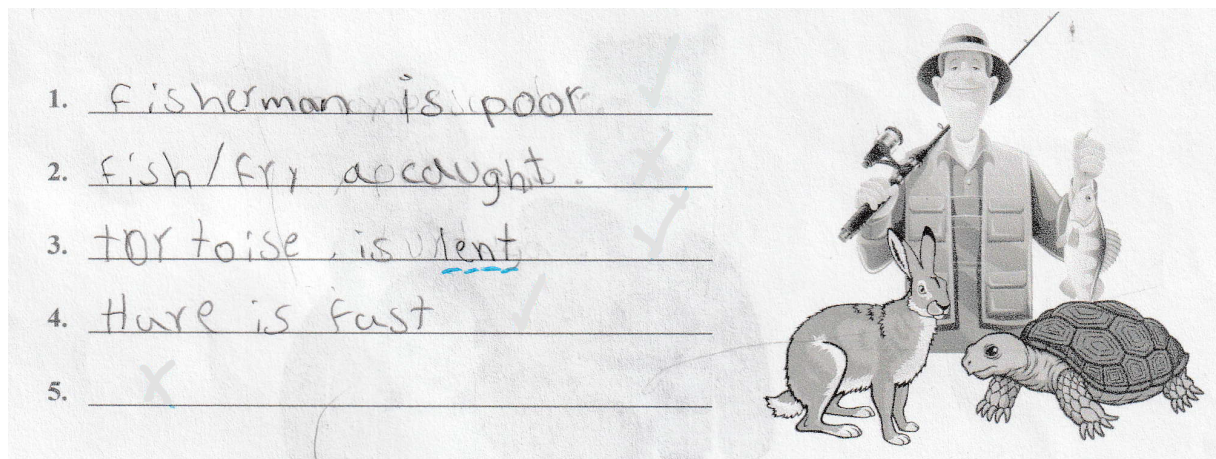 1. Fisherman is poor.
2. Fish/Fry caught.
3. tortoise is lent
4. Hare is fast
5.